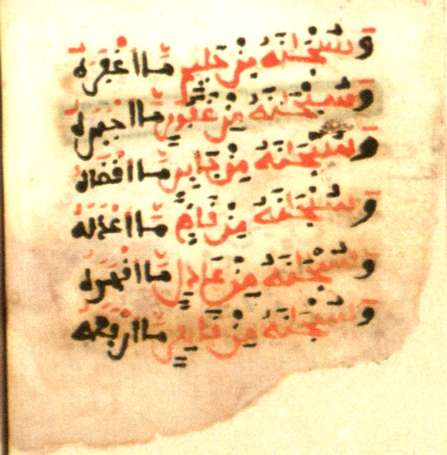 وسبحنه من حليم ما اغفره
وسبحنه من غفور ما اجبره
وسبحنه من جابر ما اقضاه
وسبحنه من قاض ما اعدله
وسبحنه من عادل ما اقهره
وسبحنه من قاهر ما ارفعه